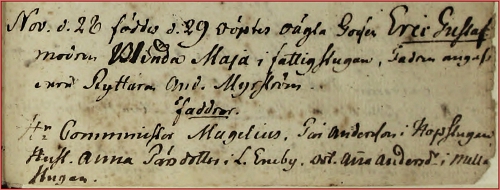 Nov. d. 28 föddes d. 29 döptes oägta Gossen Eric Gustaf
modren Maja i fattigstugan, fadren angafs
vara Ryttaren And. Myrström.
faddrar.
Hr Comminister Magelius, Pär Anderson i Hopstugan
Hust. Anna Pärsdotter i L. Eneby, och Anna Andersd. i
stugan.